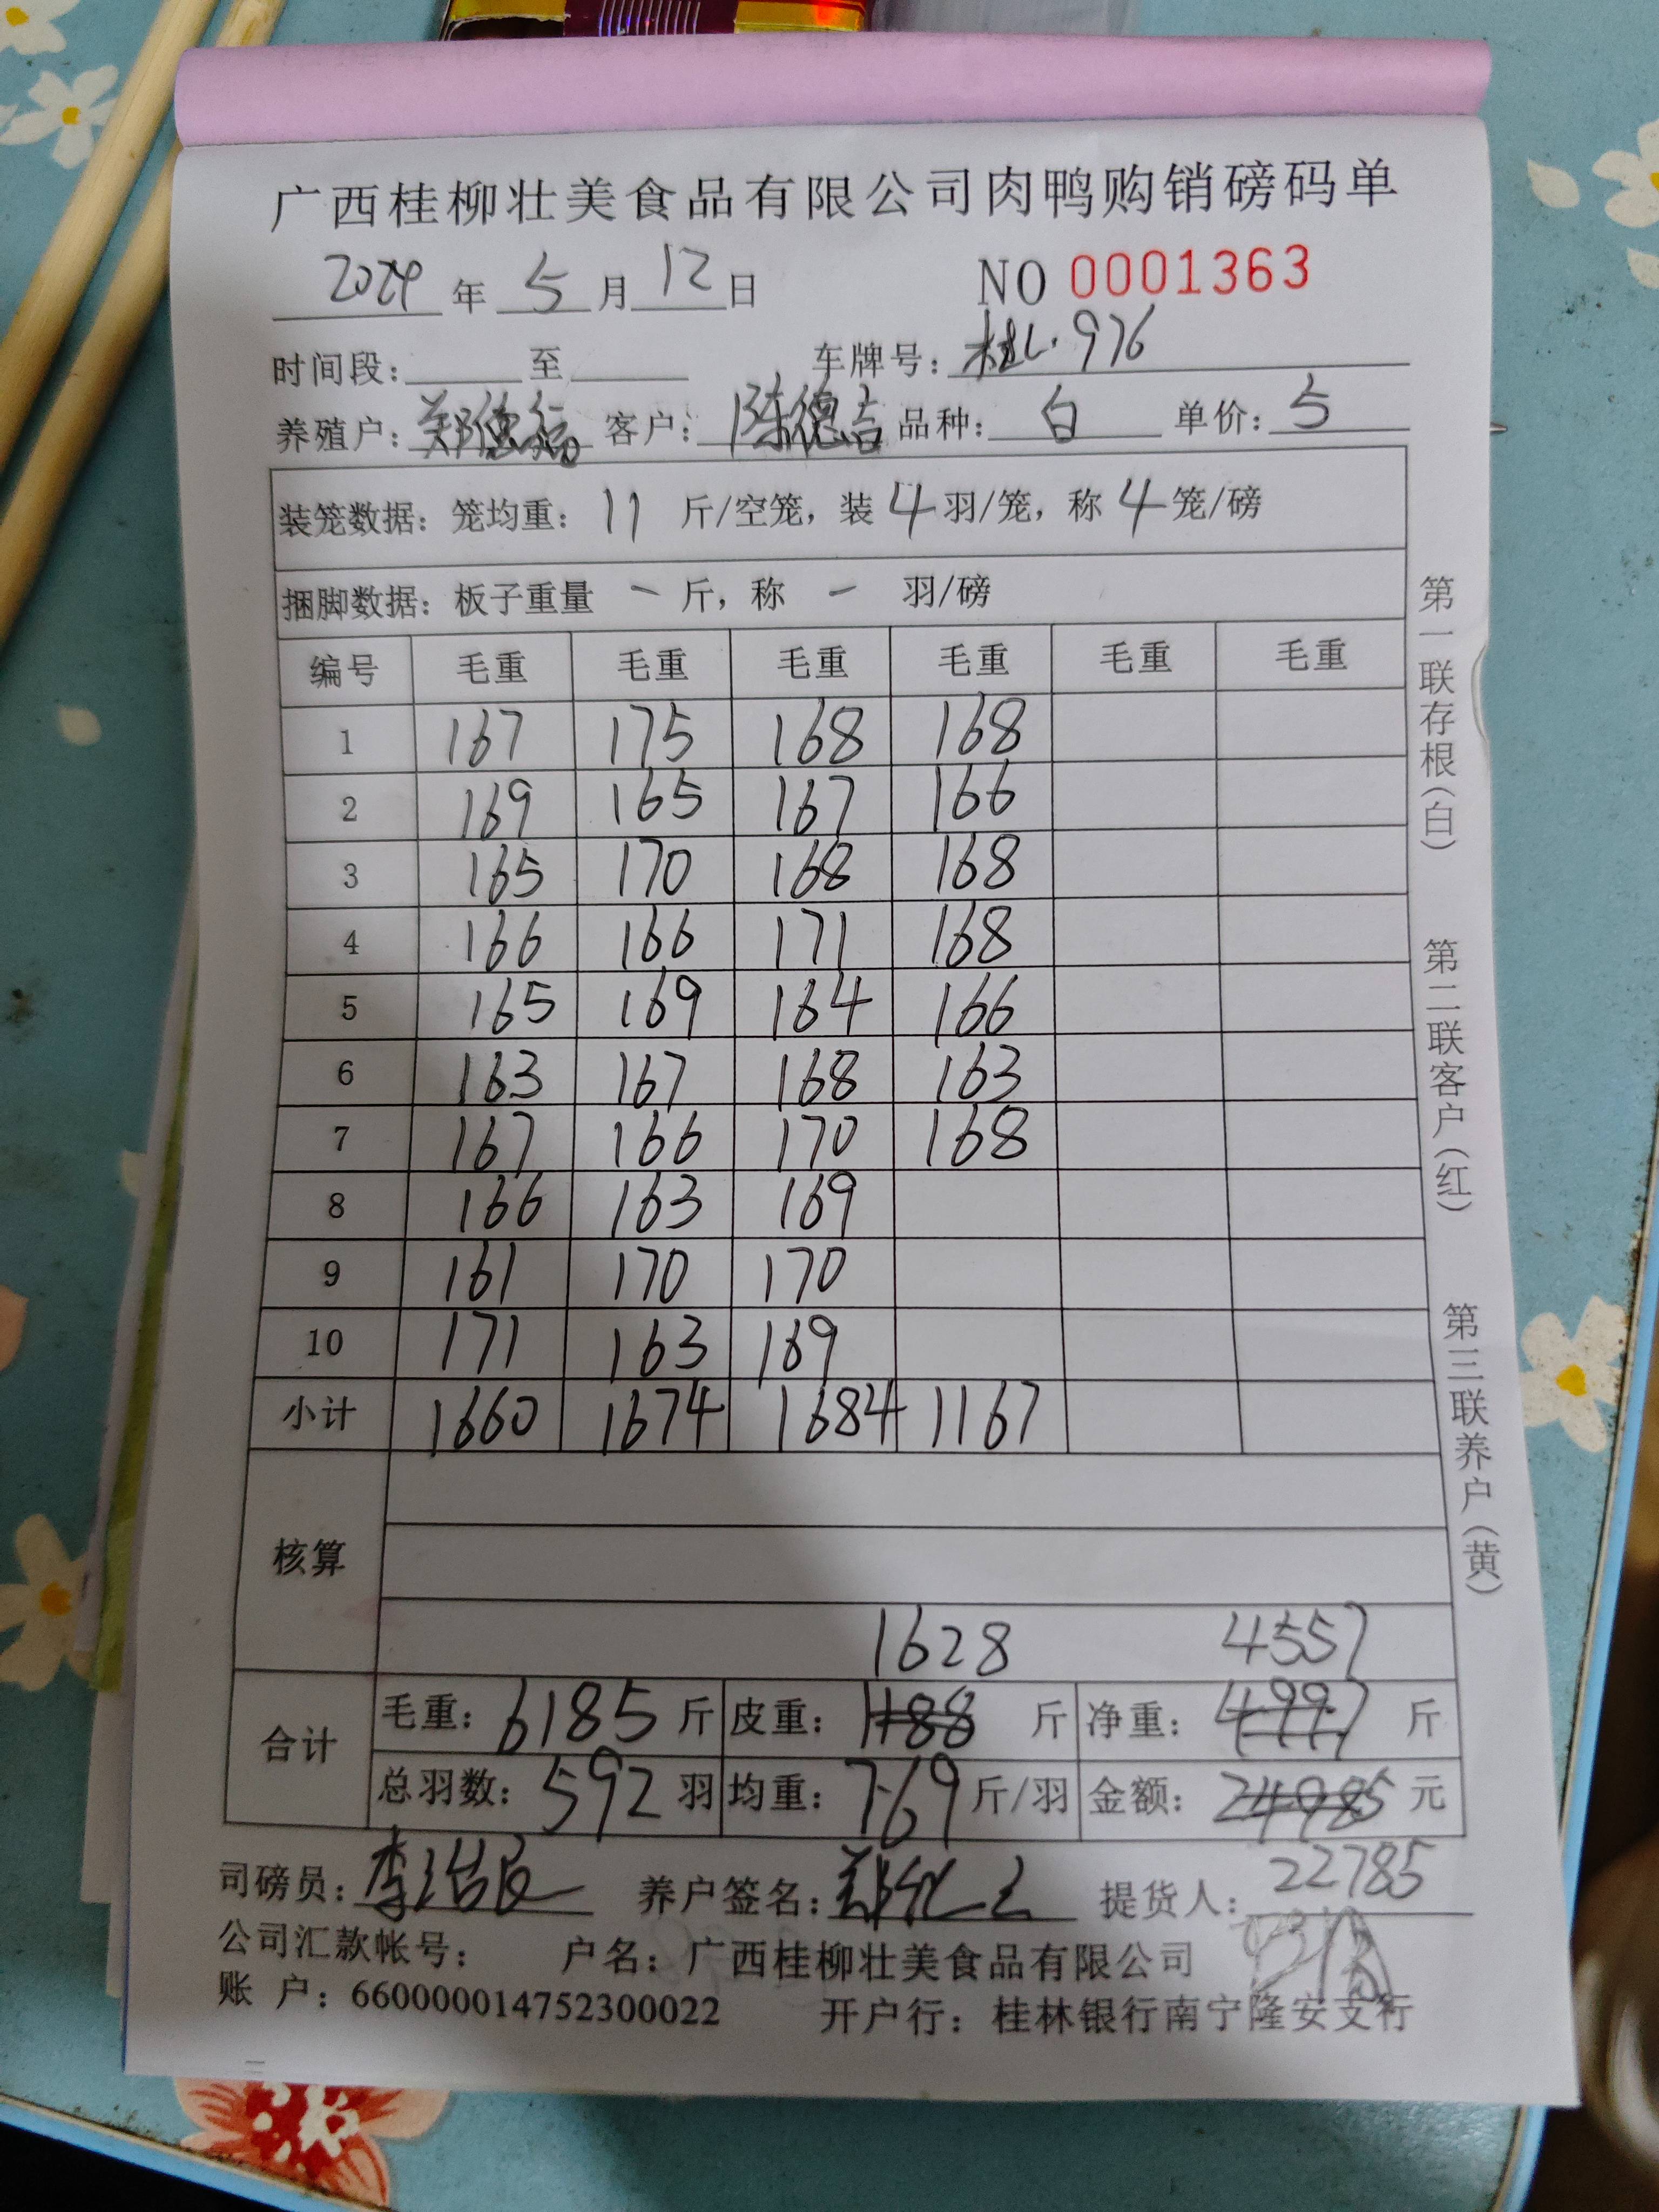 广西桂柳壮美食品有限公司肉鸭购销磅码单
2024年5月12日 NO 0001363
时间段: 至 车牌号: 桂L·976
养殖户: 郑 客户: 陈德吉 品种: 白 单价: 5
装笼数据: 笼均重: 11 斤/空笼, 装 4 羽/笼, 称 4 笼/磅
捆脚数据: 板子重量 一 斤, 称 一 羽/磅
编号 毛重 毛重 毛重 毛重 毛重 毛重
1 167 175 168 168
2 169 165 167 166
3 165 170 168 168
4 166 166 171 168
5 165 169 164 166
6 163 167 168 163
7 167 166 170 168
8 166 163 169
9 161 170 170
10 171 163 169
小计 1660 1674 1684 1167
核算
1628 4557
合计
毛重: 6185 斤 皮重: 1188 斤 净重: 4997 斤
总羽数: 592 羽 均重: 7.69 斤/羽 金额: 24985 元
22785
司磅员: 李 养户签名: 郑 提货人:
公司汇款帐号: 户名: 广西桂柳壮美食品有限公司
账户: 660000014752300022 开户行: 桂林银行南宁隆安支行
第一联存根(白) 第二联客户(红) 第三联养户(黄)